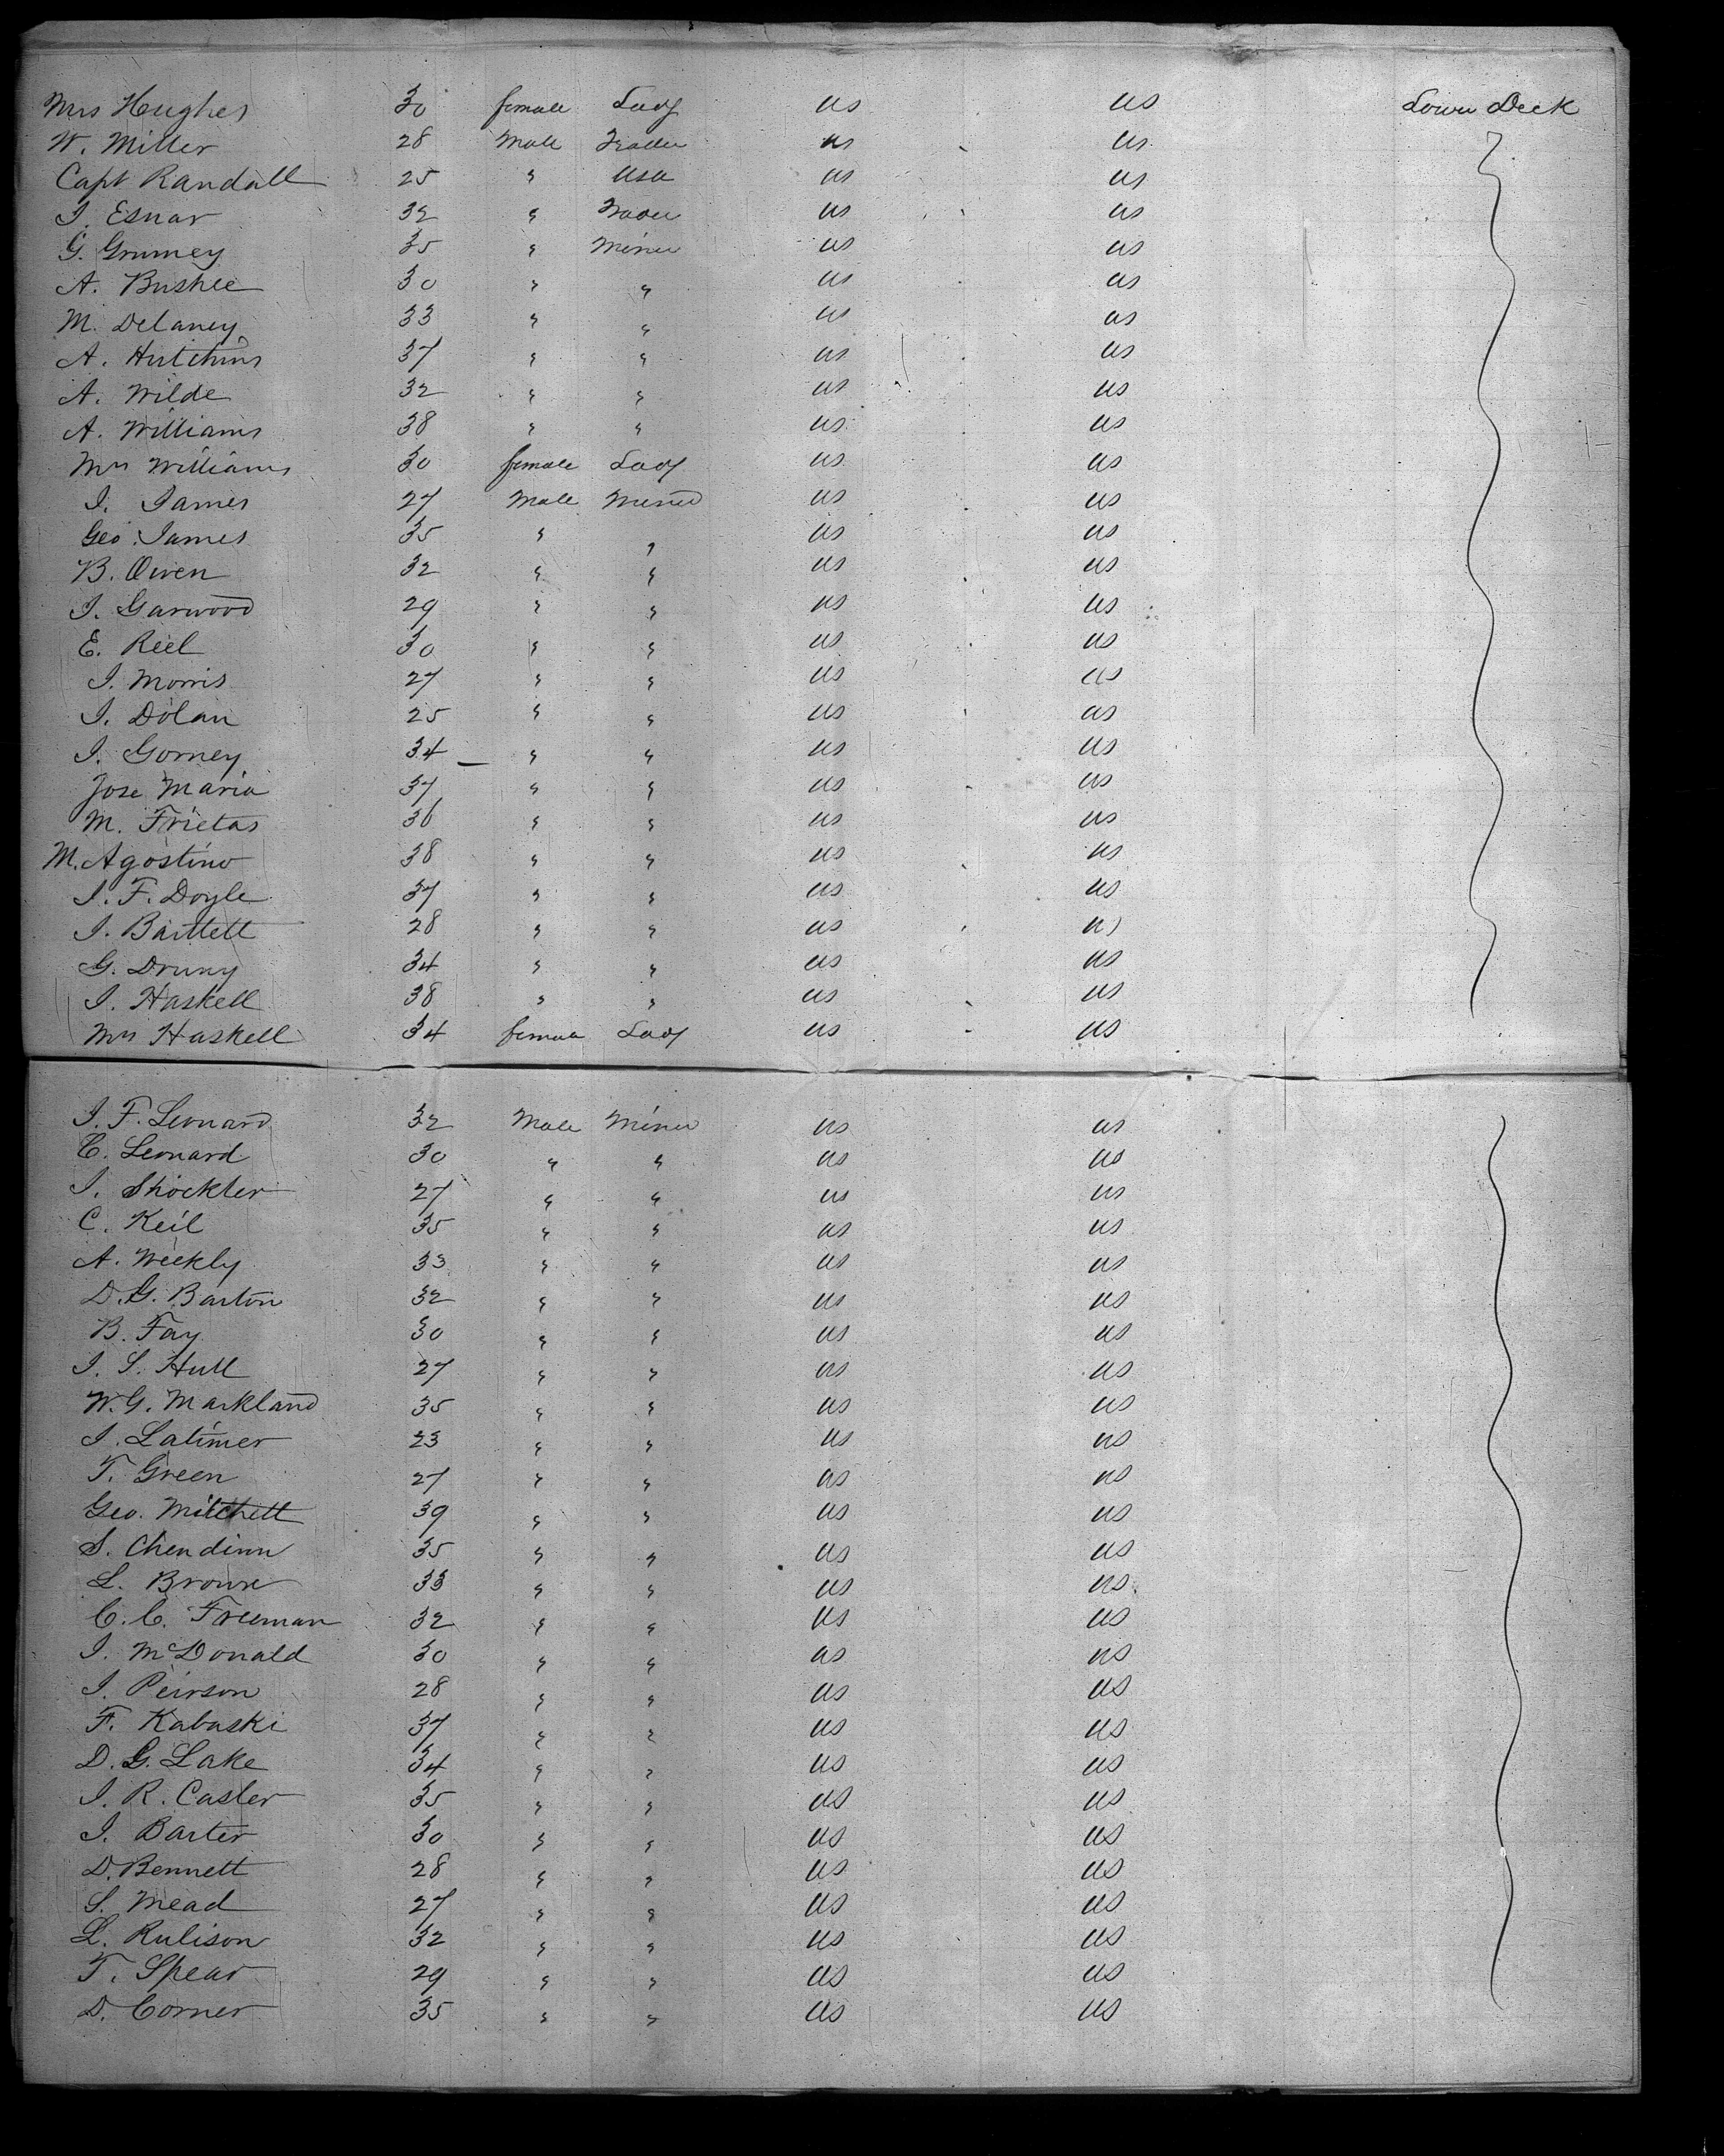 Mrs Hughes 30 female Lady US US Lower Deck
W. Miller 28 Male Trader US US
Capt Randall 25 " USA US US
J. Esnar 32 " Trader US US
G. Grumey 35 " Miner US US
A. Bushee 30 " " US US
M. Delaney 33 " " US US
A. Hutchins 37 " " US US
A. Wilde 32 " " US US
A. Williams 38 " " US US
Mrs Williams 30 female Lady US US
J. James 27 Male Miner US US
Geo. James 35 " " US US
B. Owen 32 " " US US
J. Garwood 29 " " US US
E. Reel 30 " " US US
J. Morris 27 " " US US
J. Dolan 25 " " US US
J. Gorney 34 " " US US
Jose Maria 37 " " US US
M. Frietas 36 " " US US
M. Agostino 38 " " US US
J. F. Doyle 37 " " US US
J. Bartlett 28 " " US US
G. Drury 34 " " US US
J. Haskell 38 " " US US
Mrs Haskell 34 female Lady US US
J. F. Leonard 32 Male Miner US US
C. Leonard 30 " " US US
J. Shockler 27 " " US US
C. Keil 35 " " US US
A. Weekly 33 " " US US
D. G. Barton 32 " " US US
B. Fay 30 " " US US
J. S. Hull 27 " " US US
W. G. Markland 35 " " US US
J. Latimer 23 " " US US
T. Green 27 " " US US
Geo. Mitchell 39 " " US US
S. Chendinn 35 " " US US
L. Brown 33 " " US US
C. C. Freeman 32 " " US US
J. McDonald 30 " " US US
J. Peirson 28 " " US US
F. Kabaski 37 " " US US
D. G. Lake 34 " " US US
J. R. Casler 35 " " US US
J. Barter 30 " " US US
D. Bennett 28 " " US US
S. Mead 27 " " US US
L. Rulison 32 " " US US
T. Spear 29 " " US US
D. Corner 35 " " US US